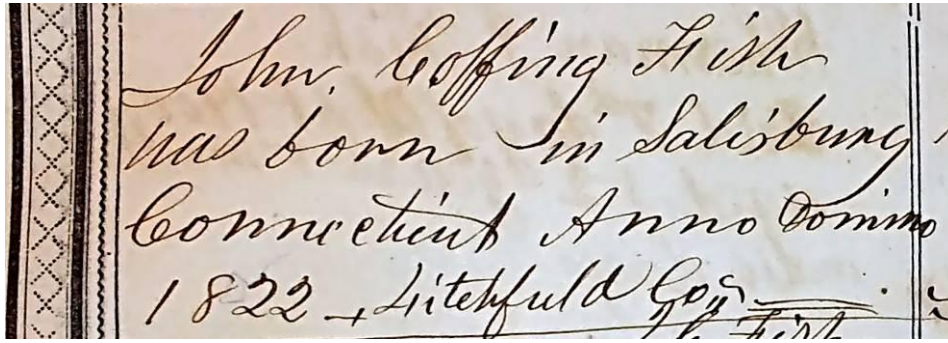 John, Coffing Fish
was born in Salisbury
Connecticut Anno Domino
1822 Litchfield Co,,
Fish